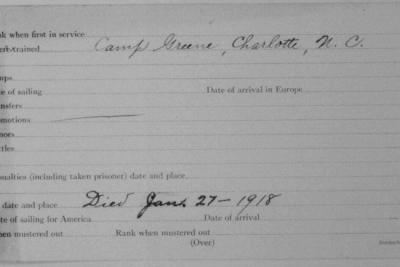 nk when first in service
ere trained Camp Greene, Charlotte, N. C.
mps
te of sailing Date of arrival in Europe
nsfers
omotions
nors
ttles
sualties (including taken prisoner) date and place
date and place Died Jan. 27-1918
te of sailing for America Date of arrival
hen mustered out Rank when mustered out
(Over)